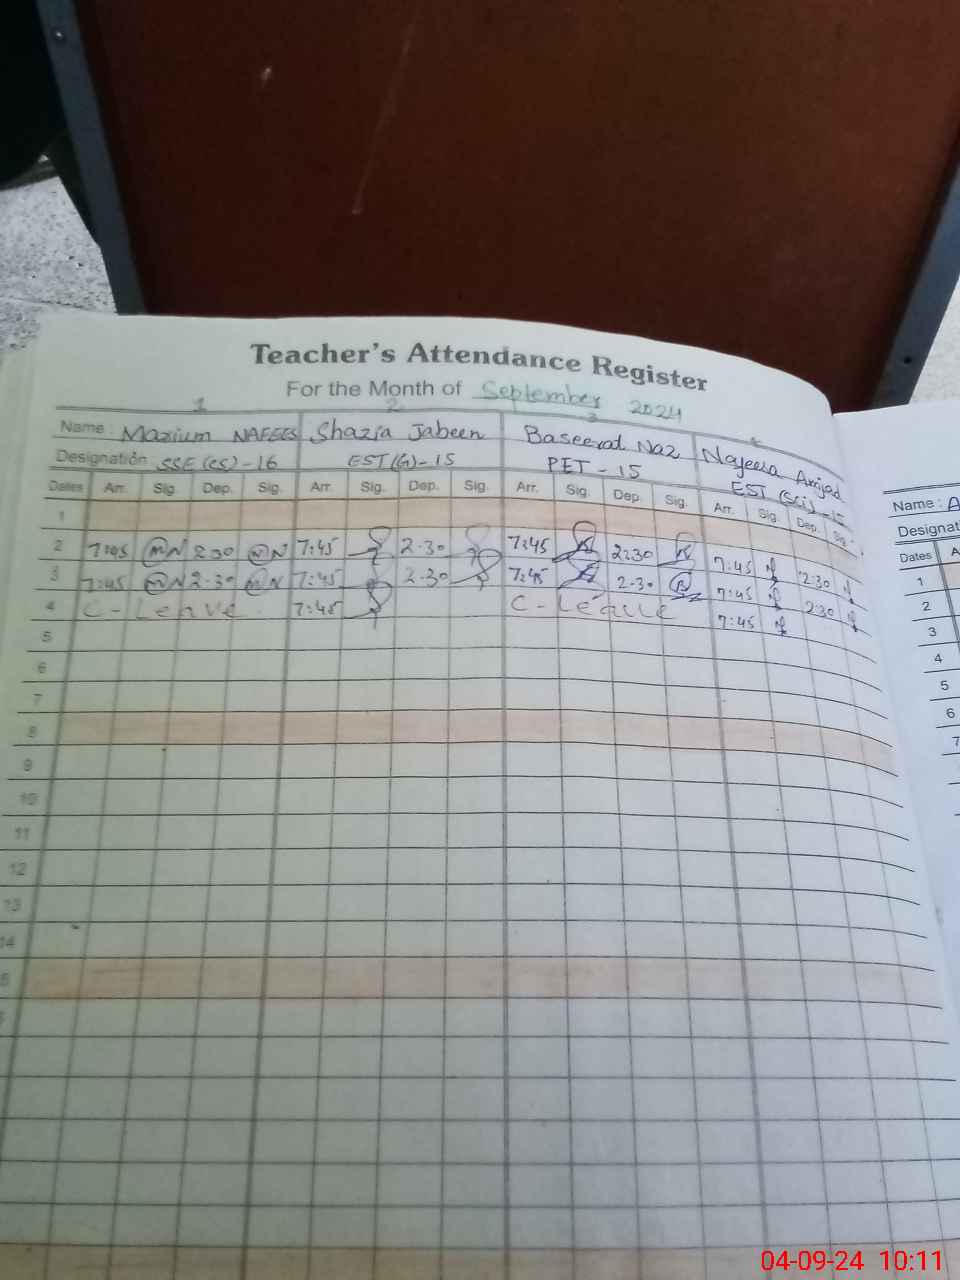 Teacher's Attendance Register
For the Month of September 2024
1 2 3 4
Name: Mazium NAFEES Shazia Jabeen Baseerad Naz Najeesa Amjad
Designation SSE (CS)-16 EST (G)-15 PET-15 EST (Sci)-15
Dates Arr. Sig. Dep. Sig. Arr. Sig. Dep. Sig. Arr. Sig. Dep. Sig. Arr. Sig. Dep. Sig.
1
2 7:45 MN 2:30 MN 7:45 2:30 7:45 2:30 7:45 2:30
3 7:45 MN 2:30 MN 7:45 2:30 7:45 2:30 7:45 2:30
4 C-Leave 7:45 C-Leave 7:45
5
6
7
8
9
10
11
12
13
14
Name: A
Designat
Dates A
1
2
3
4
5
6
7
04-09-24 10:11